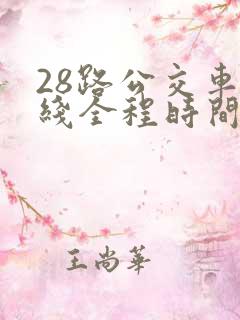 28路公交車
綫全程時間
王尚華